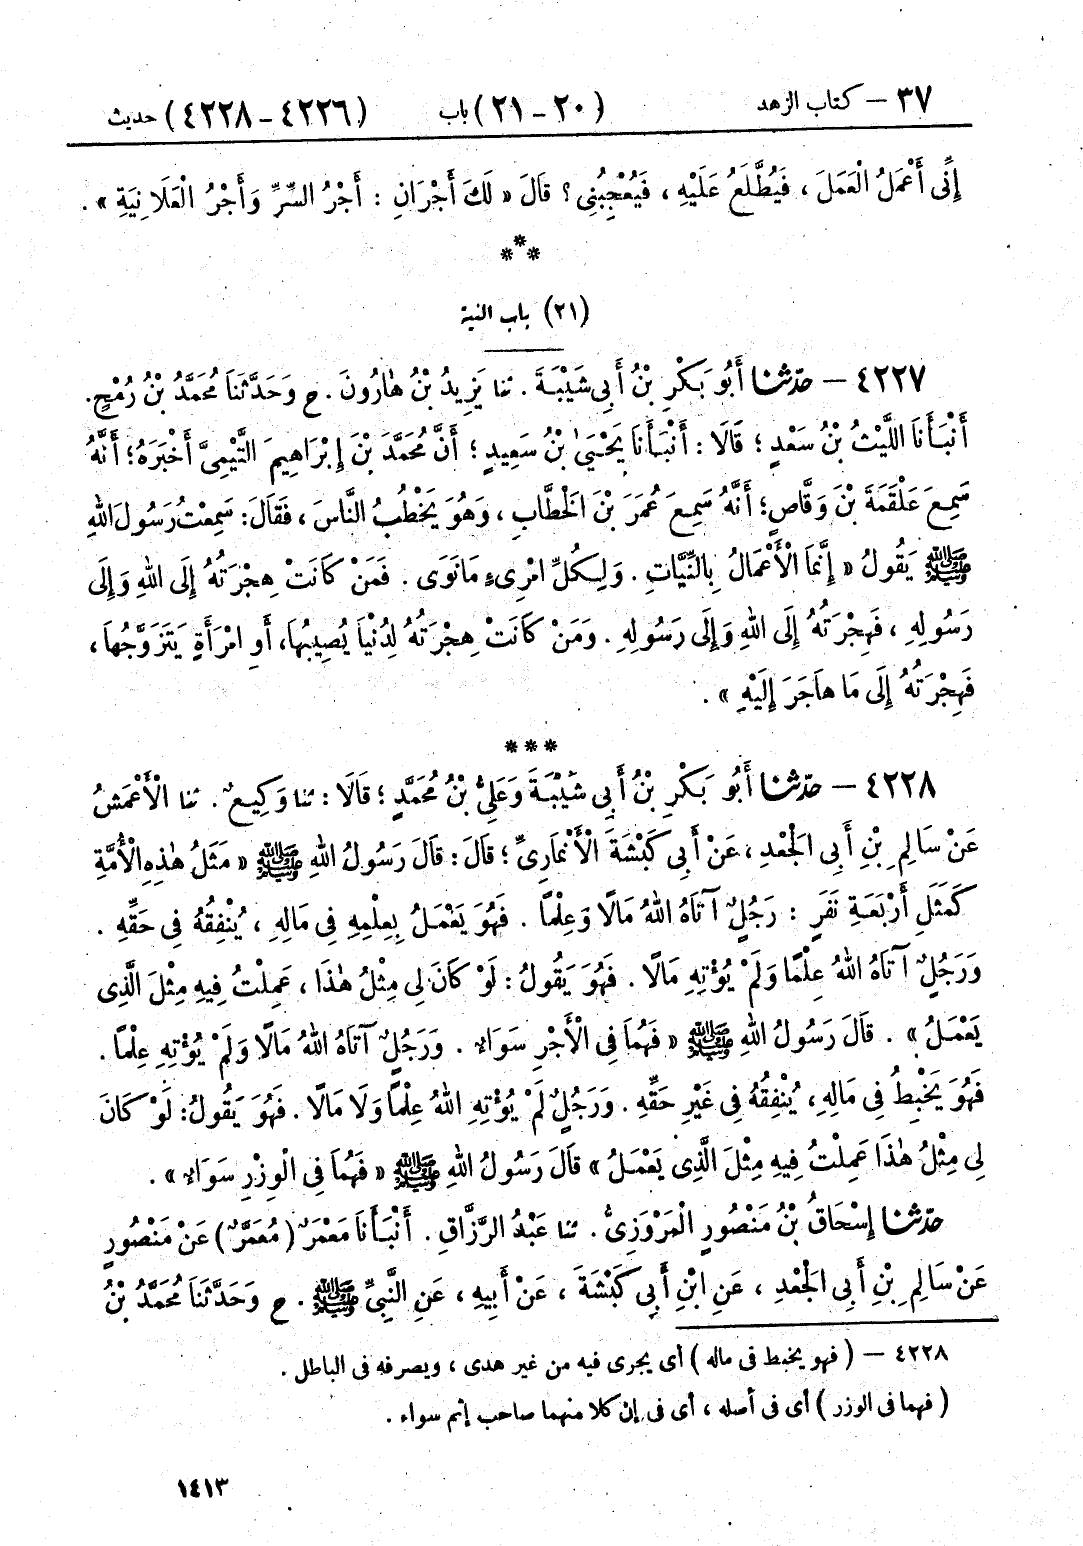 ٣٧ – كتاب الزهد (٢٠ – ٢١) باب (٤٢٢٦ – ٤٢٢٨) حديث
إِنِّى أَعْمَلُ الْعَمَلَ ، فَيُطَّلَعُ عَلَيْهِ ، فَيُعْجِبُنِى ؟ قَالَ « لَكَ أَجْرَانِ : أَجْرُ السِّرِّ وَأَجْرُ الْعَلَانِيَةِ » .
***
(٢١) باب النية
٤٢٢٧ – حدّثنا أَبُو بَكْرِ بْنُ أَبِى شَيْبَةَ . ثنا يَزِيدُ بْنُ هٰارُونَ . ح وَحَدَّثَنَا مُحَمَّدُ بْنُ رُمْحٍ.
أَنْبَأَنَا اللَّيْثُ بْنُ سَعْدٍ ؛ قَالَا : أَنْبَأَنَا يَحْيَىٰ بْنُ سَعِيدٍ ؛ أَنَّ مُحَمَّدَ بْنَ إِبْرَاهِيمَ التَّيْمِىَّ أَخْبَرَهُ؛ أَنَّهُ
سَمِعَ عَلْقَمَةَ بْنَ وَقَّاصٍ؛ أَنَّهُ سَمِعَ عُمَرَ بْنَ الْخَطَّابِ ، وَهُوَ يَخْطُبُ النَّاسَ ، فَقَالَ: سَمِعْتُ رَسُولَ اللهِ
ﷺ يَقُولُ « إِنَّمَا الْأَعْمَالُ بِالنِّيَّاتِ . وَلِكُلِّ امْرِىءٍ مَا نَوَى . فَمَنْ كَانَتْ هِجْرَتُهُ إِلَى اللهِ وَإِلَى
رَسُولِهِ ، فَهِجْرَتُهُ إِلَى اللهِ وَإِلَى رَسُولِهِ . وَمَنْ كَانَتْ هِجْرَتُهُ لِدُنْيَا يُصِيبُهَا، أَوِ امْرَأَةٍ يَتَزَوَّجُهَا،
فَهِجْرَتُهُ إِلَى مَا هَاجَرَ إِلَيْهِ » .
***
٤٢٢٨ – حدّثنا أَبُو بَكْرِ بْنُ أَبِى شَيْبَةَ وَعَلِىُّ بْنُ مُحَمَّدٍ ؛ قَالَا : ثنا وَكِيعٌ . ثنا الْأَعْمَشُ
عَنْ سَالِمِ بْنِ أَبِى الْجَعْدِ ، عَنْ أَبِى كَبْشَةَ الْأَنْمَارِىِّ ؛ قَالَ : قَالَ رَسُولُ اللهِ ﷺ « مَثَلُ هٰذِهِ الْأُمَّةِ
كَمَثَلِ أَرْبَعَةِ نَفَرٍ : رَجُلٌ آتَاهُ اللهُ مَالًا وَعِلْمًا . فَهُوَ يَعْمَلُ بِعِلْمِهِ فِى مَالِهِ ، يُنْفِقُهُ فِى حَقِّهِ .
وَرَجُلٌ آتَاهُ اللهُ عِلْمًا وَلَمْ يُؤْتِهِ مَالًا . فَهُوَ يَقُولُ : لَوْ كَانَ لِى مِثْلُ هٰذَا ، عَمِلْتُ فِيهِ مِثْلَ الَّذِى
يَعْمَلُ » . قَالَ رَسُولُ اللهِ ﷺ « فَهُمَا فِى الْأَجْرِ سَوَاءٌ . وَرَجُلٌ آتَاهُ اللهُ مَالًا وَلَمْ يُؤْتِهِ عِلْمًا .
فَهُوَ يَخْبِطُ فِى مَالِهِ ، يُنْفِقُهُ فِى غَيْرِ حَقِّهِ . وَرَجُلٌ لَمْ يُؤْتِهِ اللهُ عِلْمًا وَلَا مَالًا . فَهُوَ يَقُولُ: لَوْ كَانَ
لِى مِثْلُ هٰذَا عَمِلْتُ فِيهِ مِثْلَ الَّذِى يَعْمَلُ » قَالَ رَسُولُ اللهِ ﷺ « فَهُمَا فِى الْوِزْرِ سَوَاءٌ » .
حدّثنا إِسْحَاقُ بْنُ مَنْصُورٍ الْمَرْوَزِىُّ . ثنا عَبْدُ الرَّزَّاقِ . أَنْبَأَنَا مَعْمَرٌ ( مُعَمَّرٌ ) عَنْ مَنْصُورٍ
عَنْ سَالِمِ بْنِ أَبِى الْجَعْدِ ، عَنِ ابْنِ أَبِى كَبْشَةَ ، عَنْ أَبِيهِ ، عَنِ النَّبِىِّ ﷺ . ح وَحَدَّثَنَا مُحَمَّدُ بْنُ
٤٢٢٨ – ( فهو يخبط فى ماله ) أى يجرى فيه من غير هدى ، ويصرفه فى الباطل .
( فهما فى الوزر ) أى فى أصله ، أى فى إن كلا منهما صاحب إثم سواء .
١٤١٣